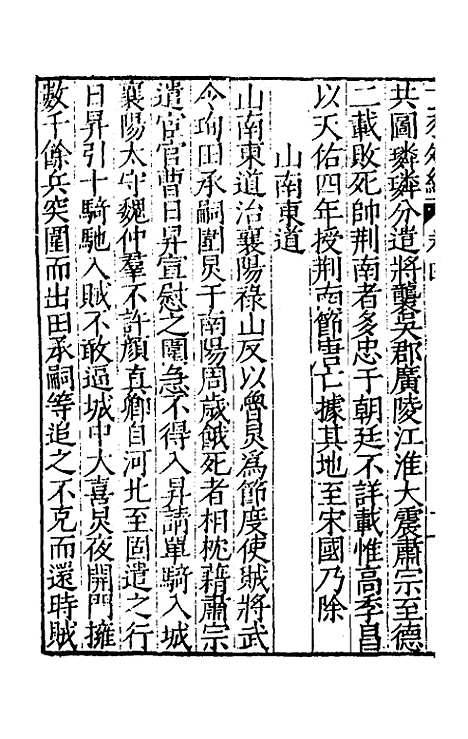 共圖璘璘分遣將襲吳郡廣陵江淮大震肅宗至德
二載敗死帥荆南者多忠于朝廷不詳載惟高季昌
以天佑四年授荆南節唐亡據其地至宋國乃除
山南東道
山南東道治襄陽祿山反以魯炅爲節度使賊將武
令珣田承嗣圍炅于南陽周歲餓死者相枕藉肅宗
遣宦官曹日昇宣慰之圍急不得入昇請單騎入城
襄陽太守魏仲羣不許顔真卿自河北至固遣之行
日昇引十騎馳入賊不敢逼城中大喜炅夜開門擁
數千餘兵突圍而出田承嗣等追之不克而還時賊